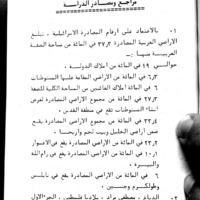 مراجع ومصادر الدراسة
١- بالاعتماد على ارقام المصادرة الاسرائيلية ، تبلغ
الاراضي العربية المصادرة ٣٧٫٣ في المائة من مساحة الضفة
الغربية منها :ـ
حوالي ١٩ في المائة من املاك الدولة .
٣٫٦ في المائة من الاراضي المقامة عليها المستوطنات
في المائة من املاك الغائبين من المساحة الكلية للضفة
في المائة من مجموع الاراضي المصادرة لغرض
المستوطنات تقع في منطقة القدس .
في المائة من مجموع الاراضي المصادرة يقع
ضمن اراضي الخليل وبيت لحم واريحا .
في المائة من الاراضي المصادرة يقع في الاغوار
١٠٫٣ في المائة من الاراضي المصادرة يقع في رام الله
والبيرة
في المائة من الاراضي المصادرة يقع في نابلس
وطولكرم وجنين .
٢- الدباغ ، مصطفى مراد ، بلادنا فلسطين ، الجزء الاول